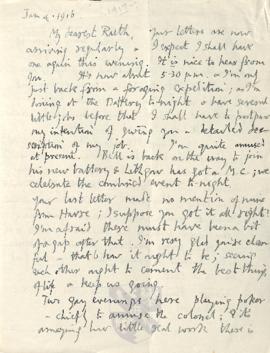 Jan 4. 1916
My dearest Ruth, Your letters are now
arriving regularly & I expect I shall have
one again this evening. It is nice to hear from
you. It's now about 5.30 p.m. & I'm only
just back from a foraging expedition; as I'm
dining at the Battery to-night & have several
little jobs before that I shall have to postpone
my intention of giving you a detailed des-
cription of my job. I'm quite amused
at present. Bell is back on the way to join
his new battery & Lithgow has got a M.C.; we
celebrate the combined event to-night.
Your last letter made no mention of mine
from Havre; I suppose you got it all right?
I'm afraid there must have been a bit
of a gap after that. I'm very glad you're cheer-
ful – that's how it ought to be; seeing
each other ought to cement the best things
of life & keep us going.
Two gay evenings here playing poker
– chiefly to amuse the colonel; It's
amazing how little real work there is